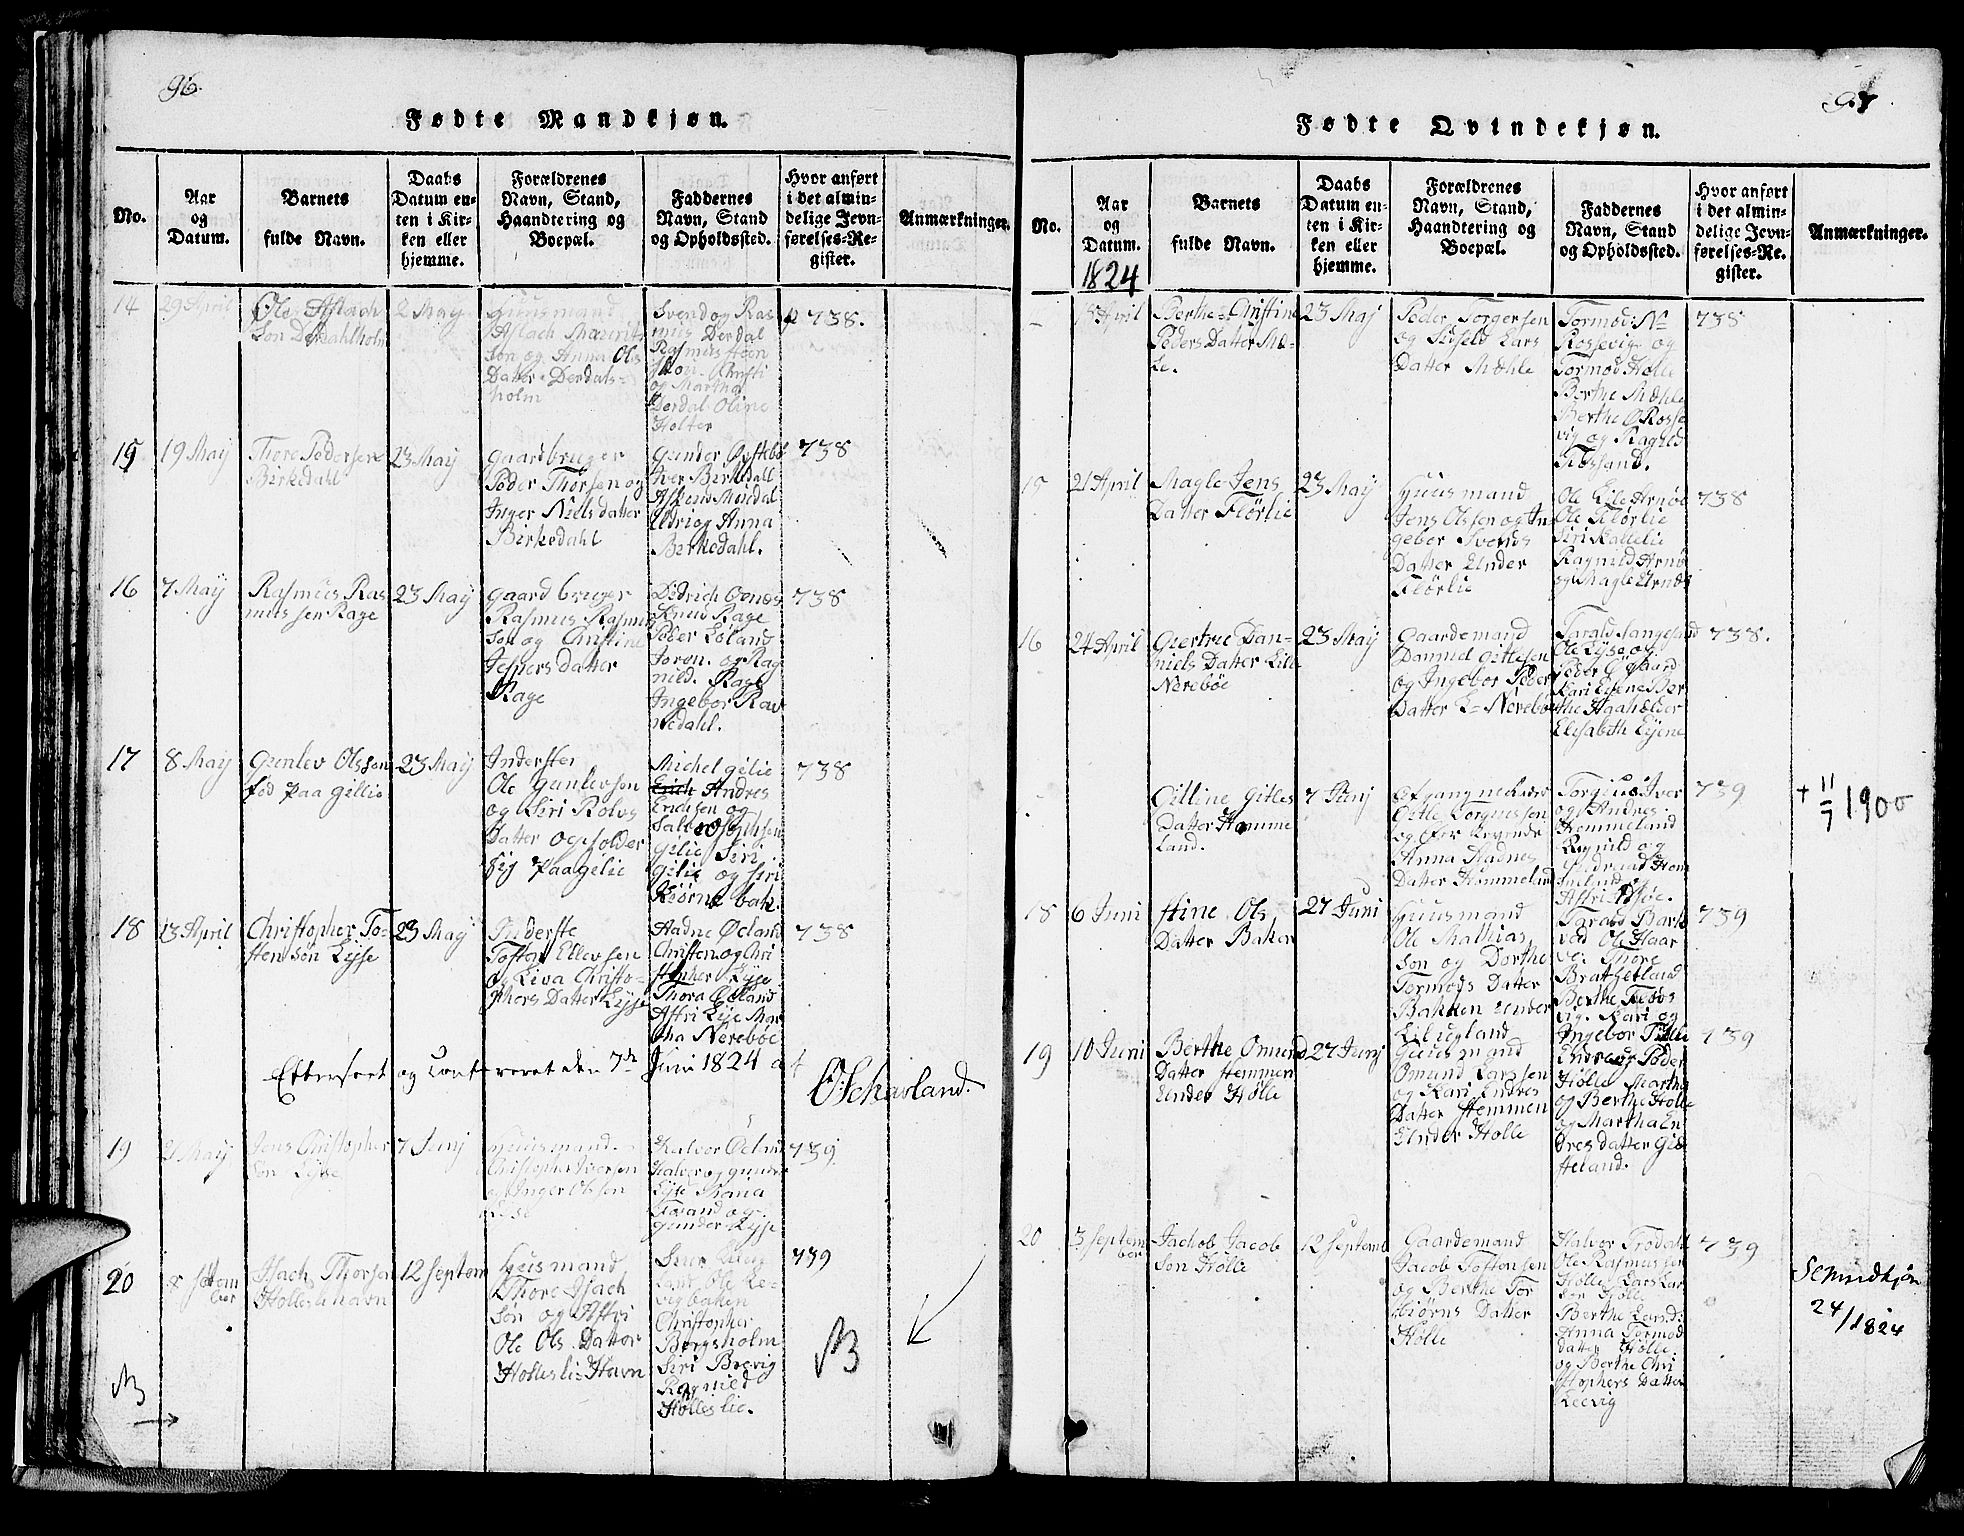 96.
Fødte Mandkjøn.
No.
Aar
og
Datum.
Barnets
fulde Navn.
Daabs
Datum en-
ten i Kir-
ken eller
hjemme.
Forældrenes
Navn, Stand,
Haandtering og
Boepæl.
Faddernes
Navn, Stand
og Opholdssted.
Hvor anført
i det almin-
delige Jevn-
førelses-Re-
gister.
Anmærkninger.
14
29 April
Ole Aslach
Søn Derdahlholm
2 May
Huusmand
Aslach
Søn og Anna Ols
Datter Derdals-
holm
Svend og Ras
mus Derdal
Rasmus
og Martha
Derdal Oline
Holter
738.
15
19 May
Thore Pedersen
Birkedahl
23 May
Gaardbruger
Peder Thorsen og
Inger Nielsdatter
Birkedahl
Gunder
Iver Birkedall
og Anna
Birkedahl.
738
16
7 May
Rasmus Ras
mussen Rage
23 May
Gaardbruger
Rasmus Rasmus
Søn og Christine
Jespersdatter
Rage
Didrich
Knud Rage
Peder Løland
Joron. og Rag
nild. Rage
Ingebor Rav
nedahl.
738
17
8 May
Gunlev Olssen
fød paa Gillie
23 May
Inderster
Ole Gunlevsen
og Siri Rolvs
Datter opholder
sig paa Gilie
Michel Gilie
Andres
Endresen og
Gilie Siri
Gilie og Siri
738
18
13 April
Christopher To-
sten Søn Lyse
23 May
Inderste
Tosten Ellevsen
og Liva Christo-
phers Datter Lyse
Aadne Øeland
Christen og Chri
stopher Lyse
Thora Øeland
Astri Lyse Mar
tha Nerebøe
738
Efterseet og Confereret den 7de Juni 1824 af
O: Schavland.
19
2 May
Jens Christopher
Søn Lyse
7 Junj
Huusmand
Christopher Iversen
og Inger Olsen
Lyse
Halvor Øeland
Halvor og Gunder
Lyse Maria
og
Gunder Lyse
739
20
8 Septem
ber
Isach Thorsen
Hølleslihavn
12 Septem
Huusmand
Thore Isach
Søn og Astri
Ole Ols Datter
Hølleslie Havn
Christopher
Bergsholm
Siri Brevig
Ragnild
Hølleslie.
739
NB
NB
97
Fødte Qvindekjøn.
No.
Aar
og
Datum.
1824
Barnets
fulde Navn.
Daabs
Datum en-
ten i Kir-
ken eller
hjemme.
Forældrenes
Navn, Stand,
Haandtering og
Boepæl.
Faddernes
Navn, Stand
og Opholdssted.
Hvor anført
i det almin-
delige Jevn-
førelses-Re-
gister.
Anmærkninger.
15 April
Berthe Christine
Peders Datter Mæ-
le.
23 Maj
Peder Torgersen
og Siseld Lars
Datter Mæhle
Tormod
Rossevig og
Tormod Hølle
Berthe Mæhle
Berthe O Rosse
vig og Ragnild
Fossand.
738
15
21 April
Magle Jens
Datter Flørlie
23 May
Huusmand
Jens Olssen og In
gebor Svends
Datter Under
Flørlie
Ole Lile Arnøe
Ole Flørlie
Siri Kallelie
Ragnild Arnø
og Magle Arnøe
738
16
24 April
Giertrue Dan-
niels Datter Lille
Nerebøe
23 May
Gaardemand
Danniel Gitlesen
og Ingebor Peder
Datter L: Nerebøe
Tarald Sangesand
Ole Lyse og
Peder
Kari Eyene Ber
the Haahelder
Elisabeth Eyene
738.
Gitline Gitles
Datter Homme
land.
7 Junj
Gitle Torgiussen
Anna Aadnes
Datter Hommeland
Torgius Iver
og Andres
Hommeland
Ragnild og
739
† 11/7 1900
18
6 Juni
Stine Ols
Datter Baken
27 Juni
Huusmand
Ole Mathias
Søn og Dorthe
Tormods Datter
Bakken Under
Lilugland
Ole Haar
Thore
Bratheland
Berthe
vig. Kari og
Ingebor
739
19
10 Juni
Berthe Omund
Datter Hemmen
Under Hølle
27 Junj
Huusmand
Omund Larssen
og Kari Endres
Datter Hemmen
Under Hølle
Endres Peder
Hølle Martha
og Berthe Hølle
og Martha En
dresdatter Gei
steland.
739
20
3 Septem
ber
Jachob Jacob
Søn Hølle
12 Septemb
Gaardemand
Jacob Tostensen
og Berthe Tor
biørns Datter
Hølle
Halvor Frødahl
Ole Rasmussen
Hølle Lars Lar
sen Hølle
Berthe Larsd:
Anna Tormod
datter Hølle.
og Berthe Chri
stophers Datter
Leevig
739
Se Mandkjøn
24/1824